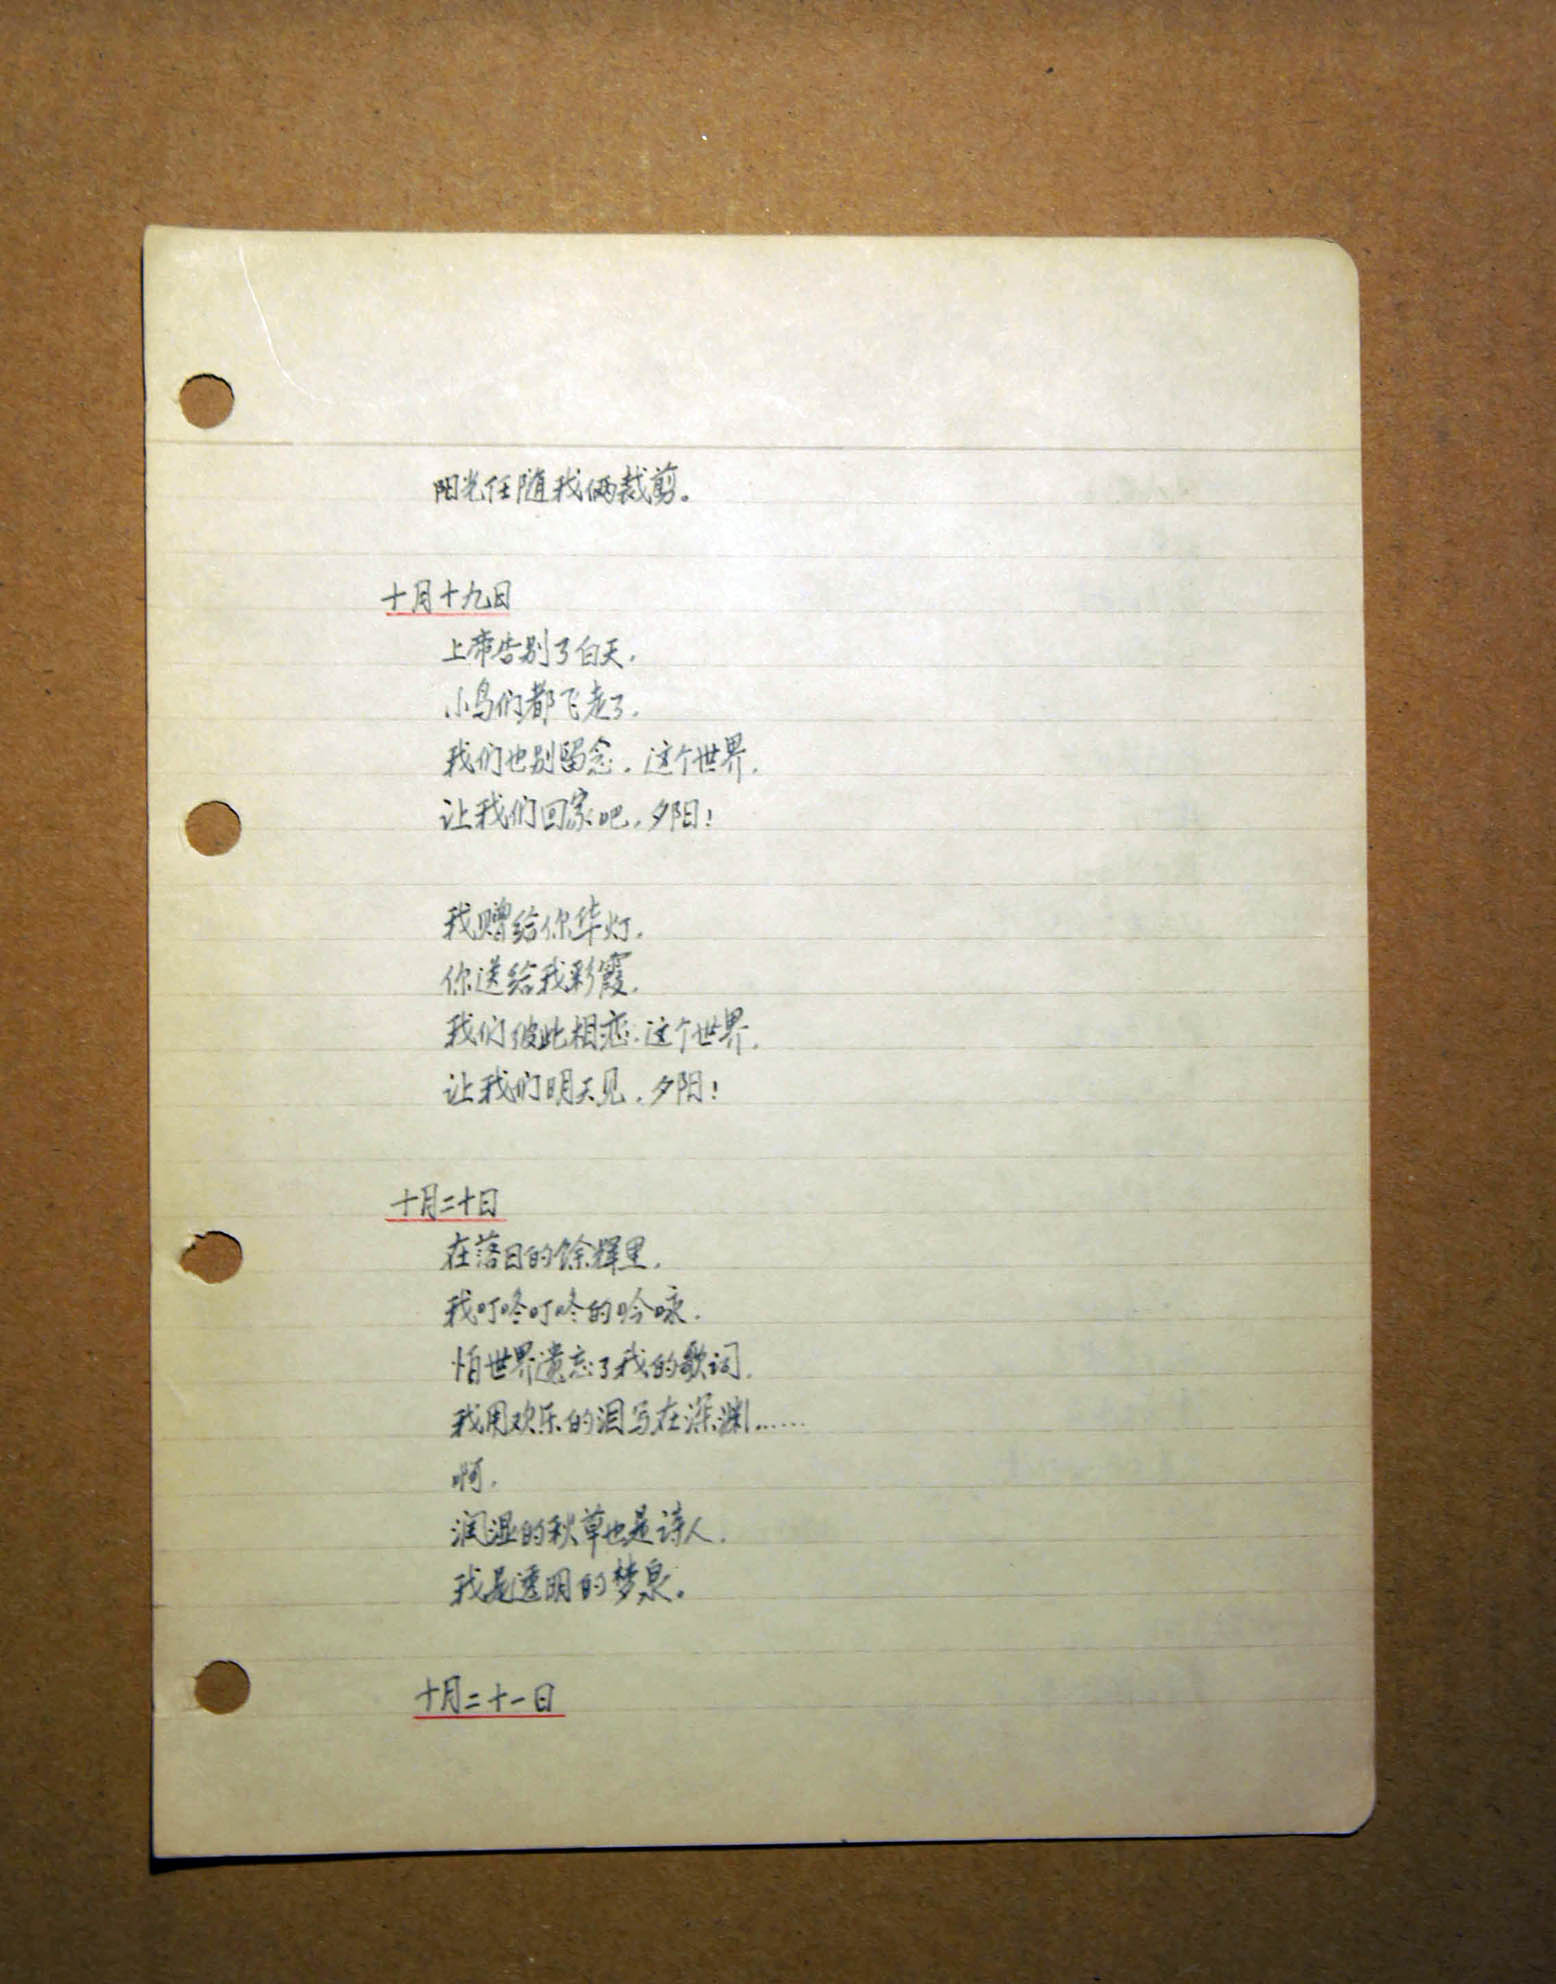 阳光任随我俩裁剪。
十月十九日
上帝告别了白天，
小鸟们都飞走了，
我们也别留念，这个世界，
让我们回家吧，夕阳！
我赠给你华灯，
你送给我彩霞，
我们彼此相恋，这个世界，
让我们明天见，夕阳！
十月二十日
在落日的馀辉里，
我叮咚叮咚的吟咏，
怕世界遗忘了我的歌词，
我用欢乐的泪写在深渊……
啊，
润湿的秋草也是诗人，
我是透明的梦泉。
十月二十一日